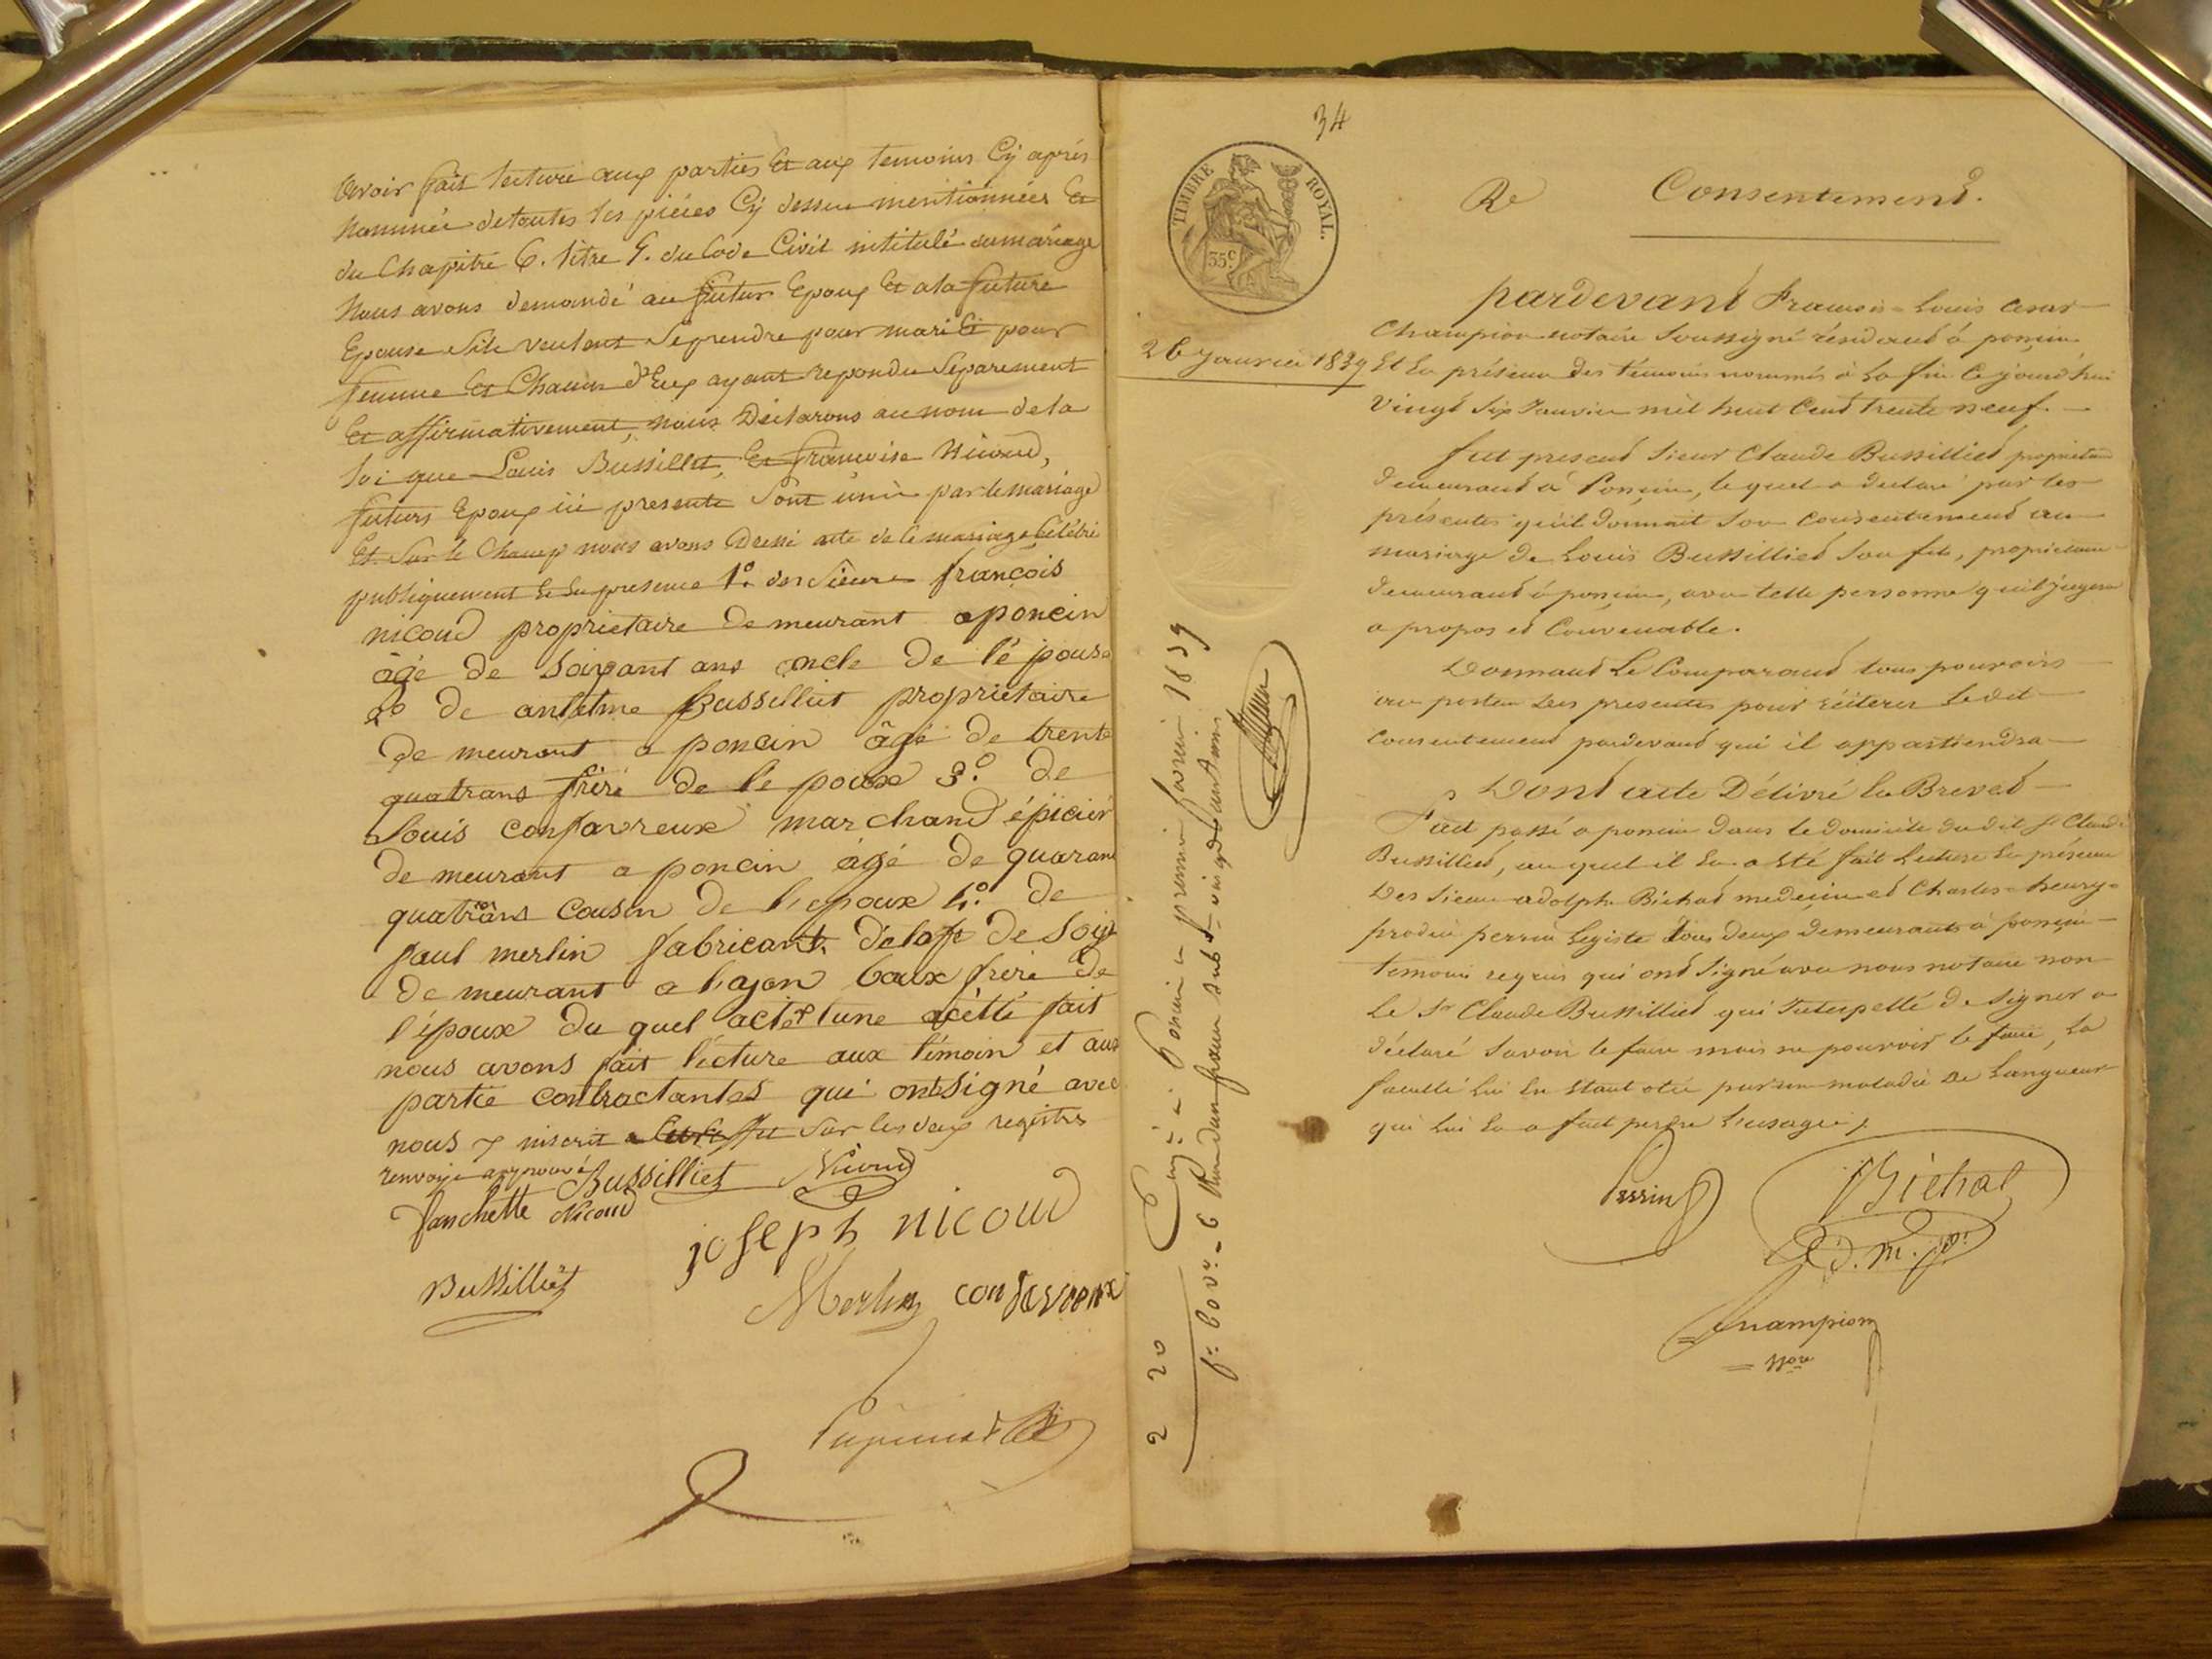 avoir fait lecture aux parties Et aux temoins Cy aprés
Nommée de toutes les piéces Cy dessus mentionnées Et
du Chapitre 6. titre 5. du Code Civil intitulé du mariage
Nous avons demandé au futur Epoux Et a la future
Epouse Sils veulent Se prendre pour mari Et pour
femme Et Chacun d'Eux ayant repondu Séparement
Et affirmativement, nous Déclarons au nom de la
loi que Louis Bussillet, Et françoise Nicoud,
futurs Epoux ici presents Sont unis par le mariage
Et Sur le Champ nous avons Dressé acte de le mariage Célébré
publiquement Et En presence 1º. des Sieurs françois
nicoud proprietaire de meurant a poncin
âgé de Soixant ans oncle de l'é pouse
2º de anselme Bussilliet proprietaire
de meurant a poncin âgé de trente
quatrans frère de le poux 3º. de
Louis confavreux marchand épicier
de meurant a poncin âgé de quarant
quatrans cousin de l'epoux 4º. de
paul merlin fabricant de Soye
de meurant a lyon baux frère de
l'époux du quel acte
nous avons fait l'écture aux témoin et aux
partie contractantes qui ont Signé avec
nous inscrit Sur les deux registres
renvoye approuvé Bussilliet Nicoud
fanchette Nicoud
joseph nicoud
Bussilliet
Merlin confavreux
34
TIMBRE ROYAL.
35c
Re Consentement.
pardevant François-Louis Cesar
Champion notaire Soussigné résidant à poncin
26 Janvier 1839
Et En présence des témoins nommés à la fin Ce jourd'hui
Vingt Six Janvier mil huit Cent trente neuf.
fut present Sieur Claude Bussilliet propriétaire
demeurant à Poncin, lequel a declaré par les
présentes qu'il donnait Son Consentement au
mariage de Louis Bussilliet Son fils, propriétaire
demeurant à poncin, avec telle personne qu'il jugera
a propos et Convenable.
Donnant Le Comparant tous pouvoirs
au porteur des presentes pour réiterer Ledit
Consentement pardevant qui il appartiendra
Dont acte Délivré En Brevet
Fait passé a poncin dans le domicile dudit Sr Claude
Bussilliet, au quel il En a Eté fait Lecture En présence
Des Sieurs adolphe Bichat medecin et Charles-henry-
perrin Legiste tous deux demeurants à poncin
temoins requis qui ont Signé avec nous notaire non
Le Sr Claude Bussilliet qui Interpellé de Signer a
déclaré Savoir le faire mais ne pouvoir le faire, la
faculté lui En Etant otée par une maladie de Langueur
qui lui En a fait perdre l'usage.
Perrin
Bichat
d. m. p.
Champion
nore
à Poncin le premier fevrier 1839
2 20